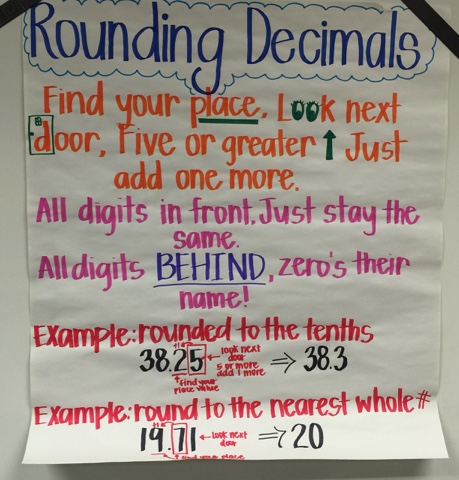 Rounding Decimals
Find your place, Look next
door, Five or greater ↑ Just
add one more.
All digits in front, Just stay the
same.
All digits BEHIND, zero's their
name!
Example: rounded to the tenths
38.25 ← look next door 5 or more add 1 more ⇒ 38.3
↑ find your place value
Example: round to the nearest whole #
19.71 ← look next door ⇒ 20
↑ find your place